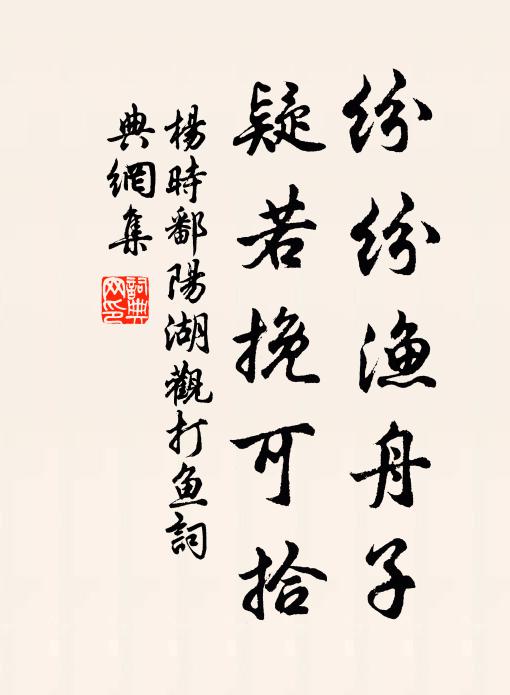 纷纷渔舟子
疑若挽可拾
楊時鄱陽湖觀打鱼詞
典網集
詞典网印